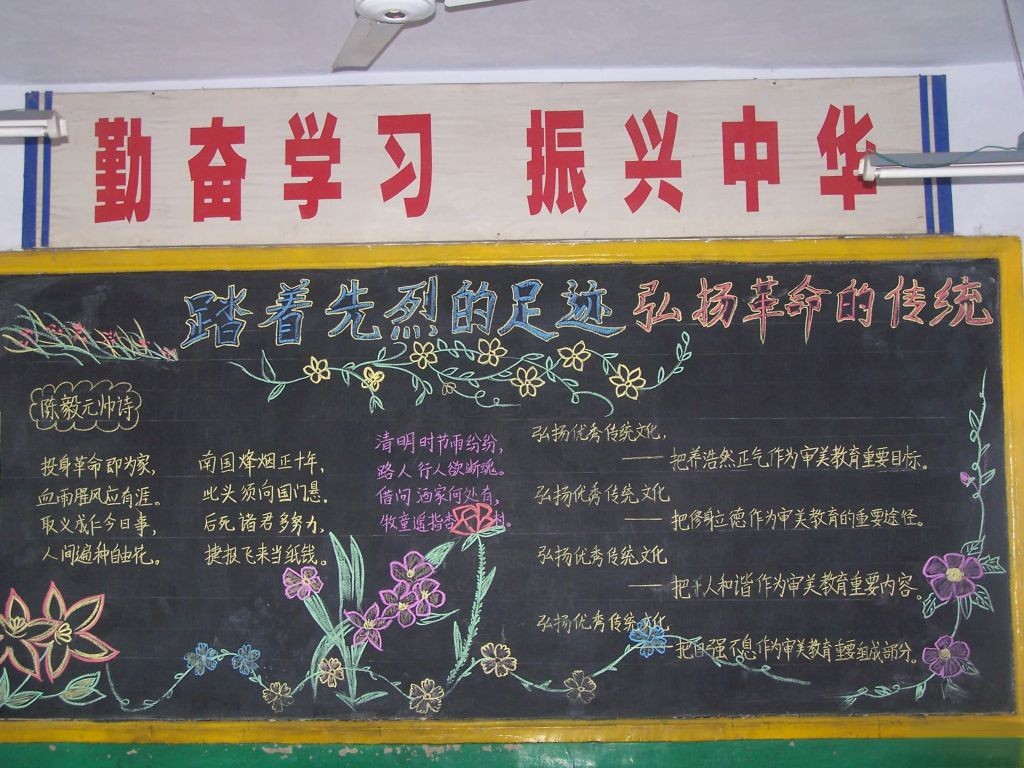 勤奋学习 振兴中华
踏着先烈的足迹 弘扬革命的传统
陈毅元帅诗
投身革命即为家,
血雨腥风应有涯。
取义成仁今日事,
人间遍种自由花。
南国烽烟正十年,
此头须向国门悬。
后死诸君多努力,
捷报飞来当纸钱。
清明时节雨纷纷,
路人行人欲断魂。
借问酒家何处有,
牧童遥指杏 村。
弘扬优秀传统文化,
—— 把养浩然正气作为审美教育重要目标。
弘扬优秀传统文化
—— 把修身立德作为审美教育的重要途径。
弘扬优秀传统文化
—— 把 人和谐作为审美教育重要内容。
弘扬优秀传统文化
—把自强不息作为审美教育重要组成部分。